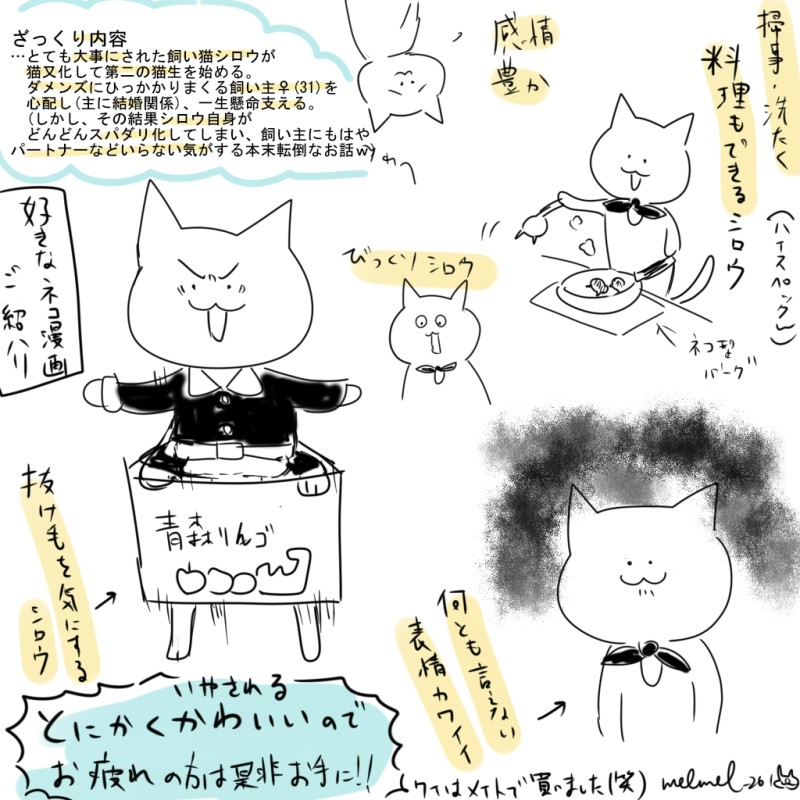 ざっくり内容
…とても大事にされた飼い猫シロウが
猫又化して第二の猫生を始める。
ダメンズにひっかかりまくる飼い主♀(31)を
心配し(主に結婚関係)、一生懸命支える。
(しかし、その結果シロウ自身が
どんどんスパダリ化してしまい、飼い主にもはや
パートナーなどいらない気がする本末転倒なお話w)
感情
豊か
掃事・洗たく
料理もできるシロウ
(ハイスペック)
好きなネコ漫画
ご紹介
びっくりシロウ
ネコ型
バーグ
青森りんご
抜け毛を気にする
シロウ
何とも言えない
表情カワイイ
いやされる
とにかくかわいいので
お疲れの方は是非お手に!!
メイトで買いました(笑)
melmel_261